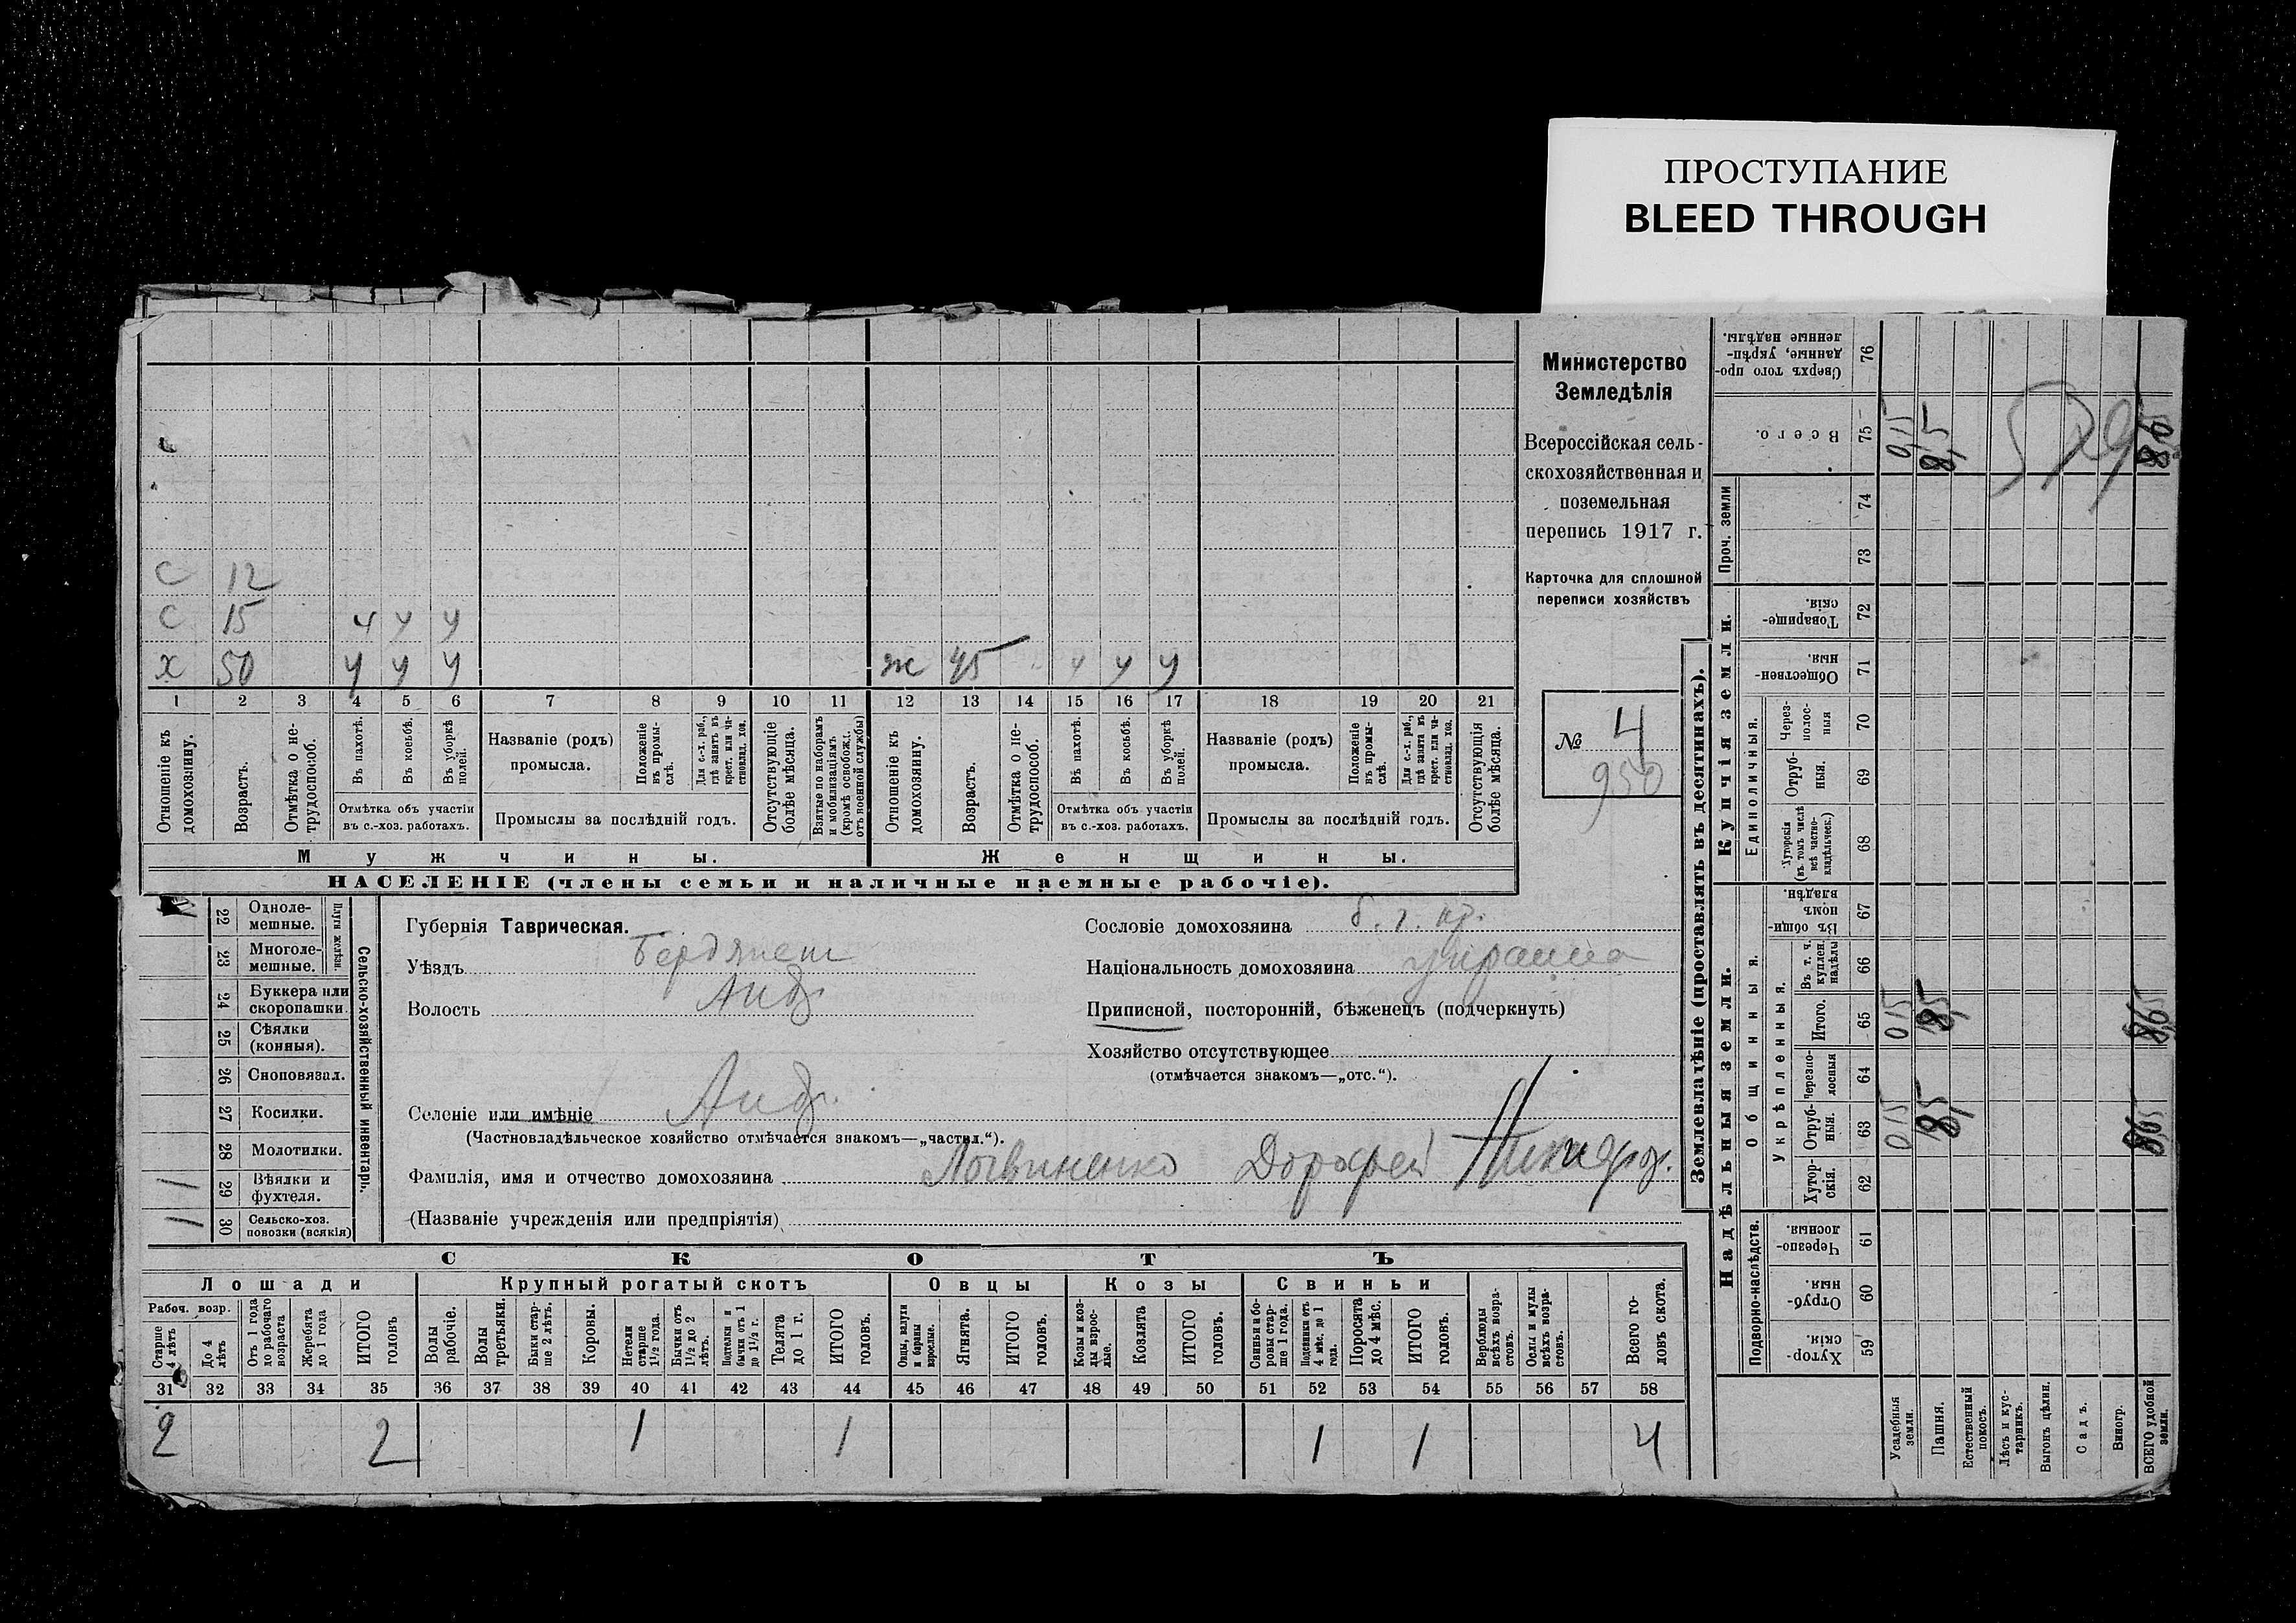 ПРОСТУПАНИЕ
BLEED THROUGH
С 12
С 15 у у у
х 50 у у у ж 45 у у у
1 2 3 4 5 6 7 8 9 10 11 12 13 14 15 16 17 18 19 20 21
Отношеніе къ домохозяину.
Возрастъ.
Отмѣтка о не-трудоспособ.
Въ пахотѣ.
Въ косьбѣ.
Въ уборкѣ полей.
Отмѣтка объ участіи
въ с.-хоз. работахъ.
Названіе (родъ)
промысла.
Положеніе въ промы-слѣ.
Для с.-х. раб., гдѣ занятъ въ крест. или ча-стновлад. хоз.
Промыслы за послѣдній годъ.
Отсутствующіе болѣе мѣсяца.
Взятые по наборамъ и мобилизаціямъ (кромѣ освобожд. отъ военной службы)
Отношеніе къ домохозяину.
Возрастъ.
Отмѣтка о не-трудоспособ.
Въ пахотѣ.
Въ косьбѣ.
Въ уборкѣ полей.
Отмѣтка объ участіи
въ с.-хоз. работахъ.
Названіе (родъ)
промысла.
Положеніе въ промы-слѣ.
Для с.-х. раб., гдѣ занята въ крест. или ча-стновлад. хоз.
Промыслы за послѣдній годъ.
Отсутствующія болѣе мѣсяца.
Мужчины. Женщины.
НАСЕЛЕНІЕ (члены семьи и наличные наемные рабочіе).
Министерство
Земледѣлія
Всероссійская сель-
скохозяйственная и
поземельная
перепись 1917 г.
Карточка для сплошной
переписи хозяйствъ
№ 4
950
Сельско-хозяйственный инвентарь.
Плуги желѣзн.
22 Одноле-
мешные.
23 Многоле-
мешные.
24 Буккера или
скоропашки.
25 Сѣялки
(конныя).
26 Сноповязал.
27 Косилки.
28 Молотилки.
1 29 Вѣялки и
фухтеля.
1 30 Сельско-хоз.
повозки (всякія)
Губернія Таврическая.
Уѣздъ Бердянск
Волость Анд.
Селеніе или имѣніе Анд.
(Частновладѣльческое хозяйство отмѣчается знакомъ—„частвл.“).
Фамилія, имя и отчество домохозяина Логвиненко Дорофей Никифор.
(Названіе учрежденія или предпріятія)
Сословіе домохозяина б. г. кр.
Національность домохозяина
Приписной, посторонній, бѣженецъ (подчеркнуть)
Хозяйство отсутствующее
(отмѣчается знакомъ—„отс.“).
СКОТЪ
Лошади Крупный рогатый скотъ Овцы Козы Свиньи
Рабоч. возр.
Старше 4 лѣтъ
До 4 лѣтъ
Отъ 1 года до рабочаго возраста
Жеребята до 1 года
ИТОГО головъ
Волы рабочіе.
Волы третьяки.
Быки стар-ше 2 лѣтъ.
Коровы.
Нетели старше 1½ года.
Бычки отъ 1½ до 2 лѣтъ.
Подтелки и бычки отъ 1 до 1½ г.
Телята до 1 г.
ИТОГО головъ.
Овцы, валухи и бараны взрослые.
Ягнята.
ИТОГО головъ.
Козы и коз-лы взрос-лые.
Козлята
ИТОГО головъ.
Свиньи и бо-ровы стар-ше 1 года.
Подсвинки отъ 4 мѣс. до 1 года.
Поросята до 4 мѣс.
ИТОГО головъ.
Верблюды всѣхъ возра-стовъ.
Ослы и мулы всѣхъ возра-стовъ.
Всего го-ловъ скота.
31 32 33 34 35 36 37 38 39 40 41 42 43 44 45 46 47 48 49 50 51 52 53 54 55 56 57 58
2 2 1 1 1 1 4
Землевладѣніе (проставлять въ десятинахъ).
Надѣльныя земли. Купчія земли. Проч. земли
Подворно-наслѣдств.
Общинныя.
Укрѣпленныя.
Единоличныя.
Хутор-скія. 59
Отруб-ныя. 60
Черезпо-лосныя. 61
Хутор-скія. 62
Отруб-ныя. 63
Черезпо-лосныя 64
Итого. 65
Въ т. ч. куплен. надѣлы 66
Въ общи-номъ владѣн. 67
Хуторскія (въ томъ числѣ всѣ частно-владѣльческ.) 68
Отруб-ныя. 69
Через-полос-ныя 70
Обществен-ныя. 71
Товарище-скія. 72
73
74
Всего. 75
Сверхъ того про-данные, укрѣп-ленные надѣлы. 76
Усадебныя земли. 015 015 015
Пашня. 8,5 8,5 8,5
Естественный покосъ.
Лѣсъ и кус-тарникъ.
Выгонъ цѣлин.
Садъ.
Виногр.
ВСЕГО удобной земли. 8,65 8,65 8,65